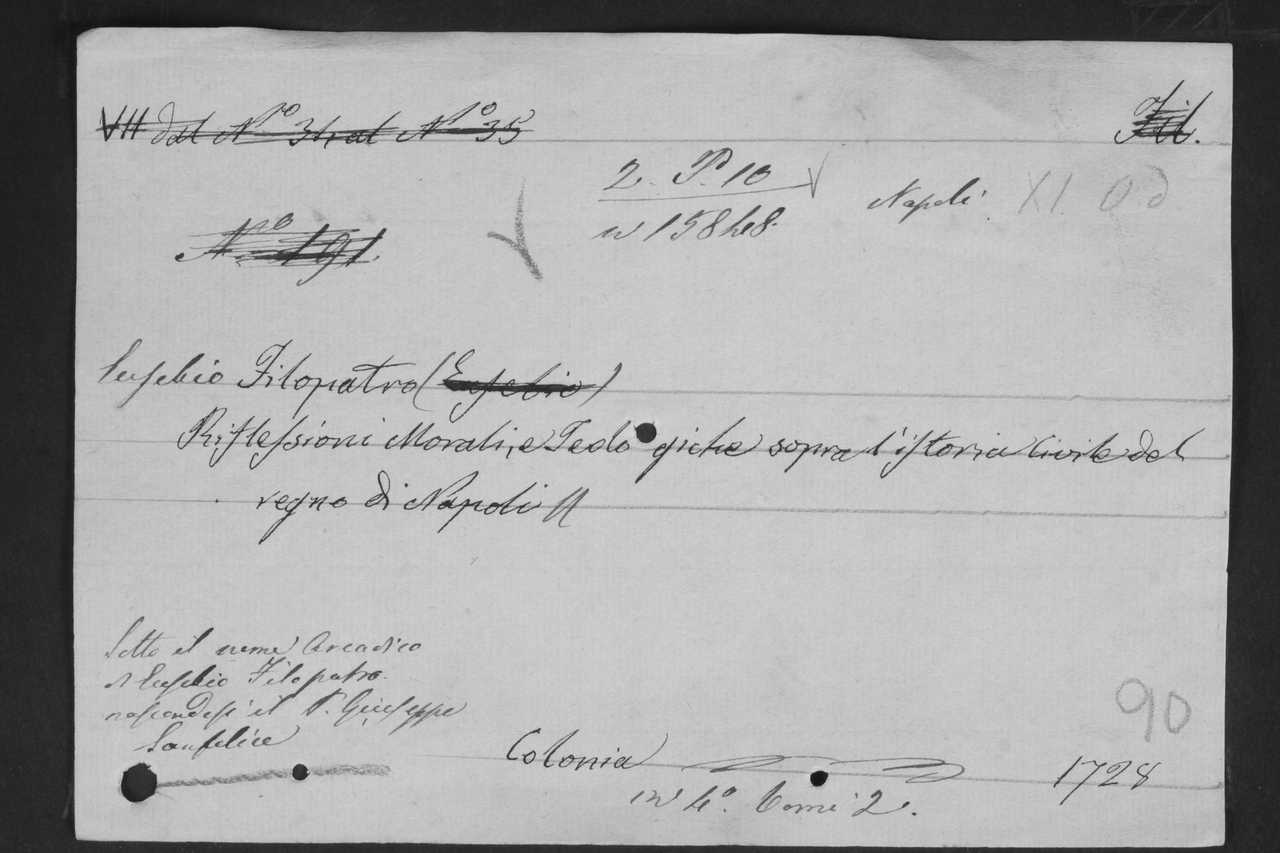 VII dal Nº 34 al Nº 35
Fil.
2. P. 10
Napoli XI.
Nº 191.
in 158 48.
Eusebio Filopatro (Eusebio)
Riflessioni Morali, e Teolo giche sopra l'istoria Civile del
regno di Napoli //
Sotto il nome Arcadico
di Eusebio Filopatro
nascondesi il P. Giuseppe
Sanfelice
90
Colonia 1728
in 4º. Tomi 2.